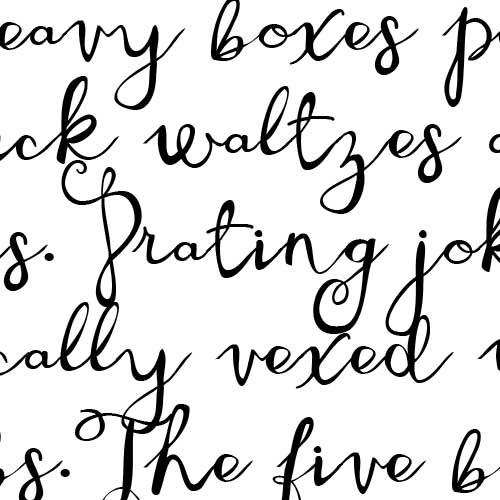 eavy boxes p
ck waltzes
s. Prating jok
cally vexed
bs. The five b